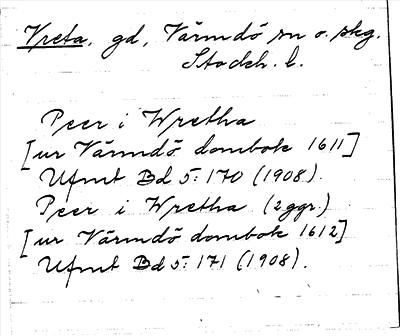 Vreta, gd, Värmdö sn o. skg.
Stockh. l.
Peer i Wretha
[ur Värmdö dombok 1611]
Ufmt Bd 5: 170 (1908).
Peer i Wretha (2 ggr.)
[ur Värmdö dombok 1612]
Ufmt Bd 5: 171 (1908).